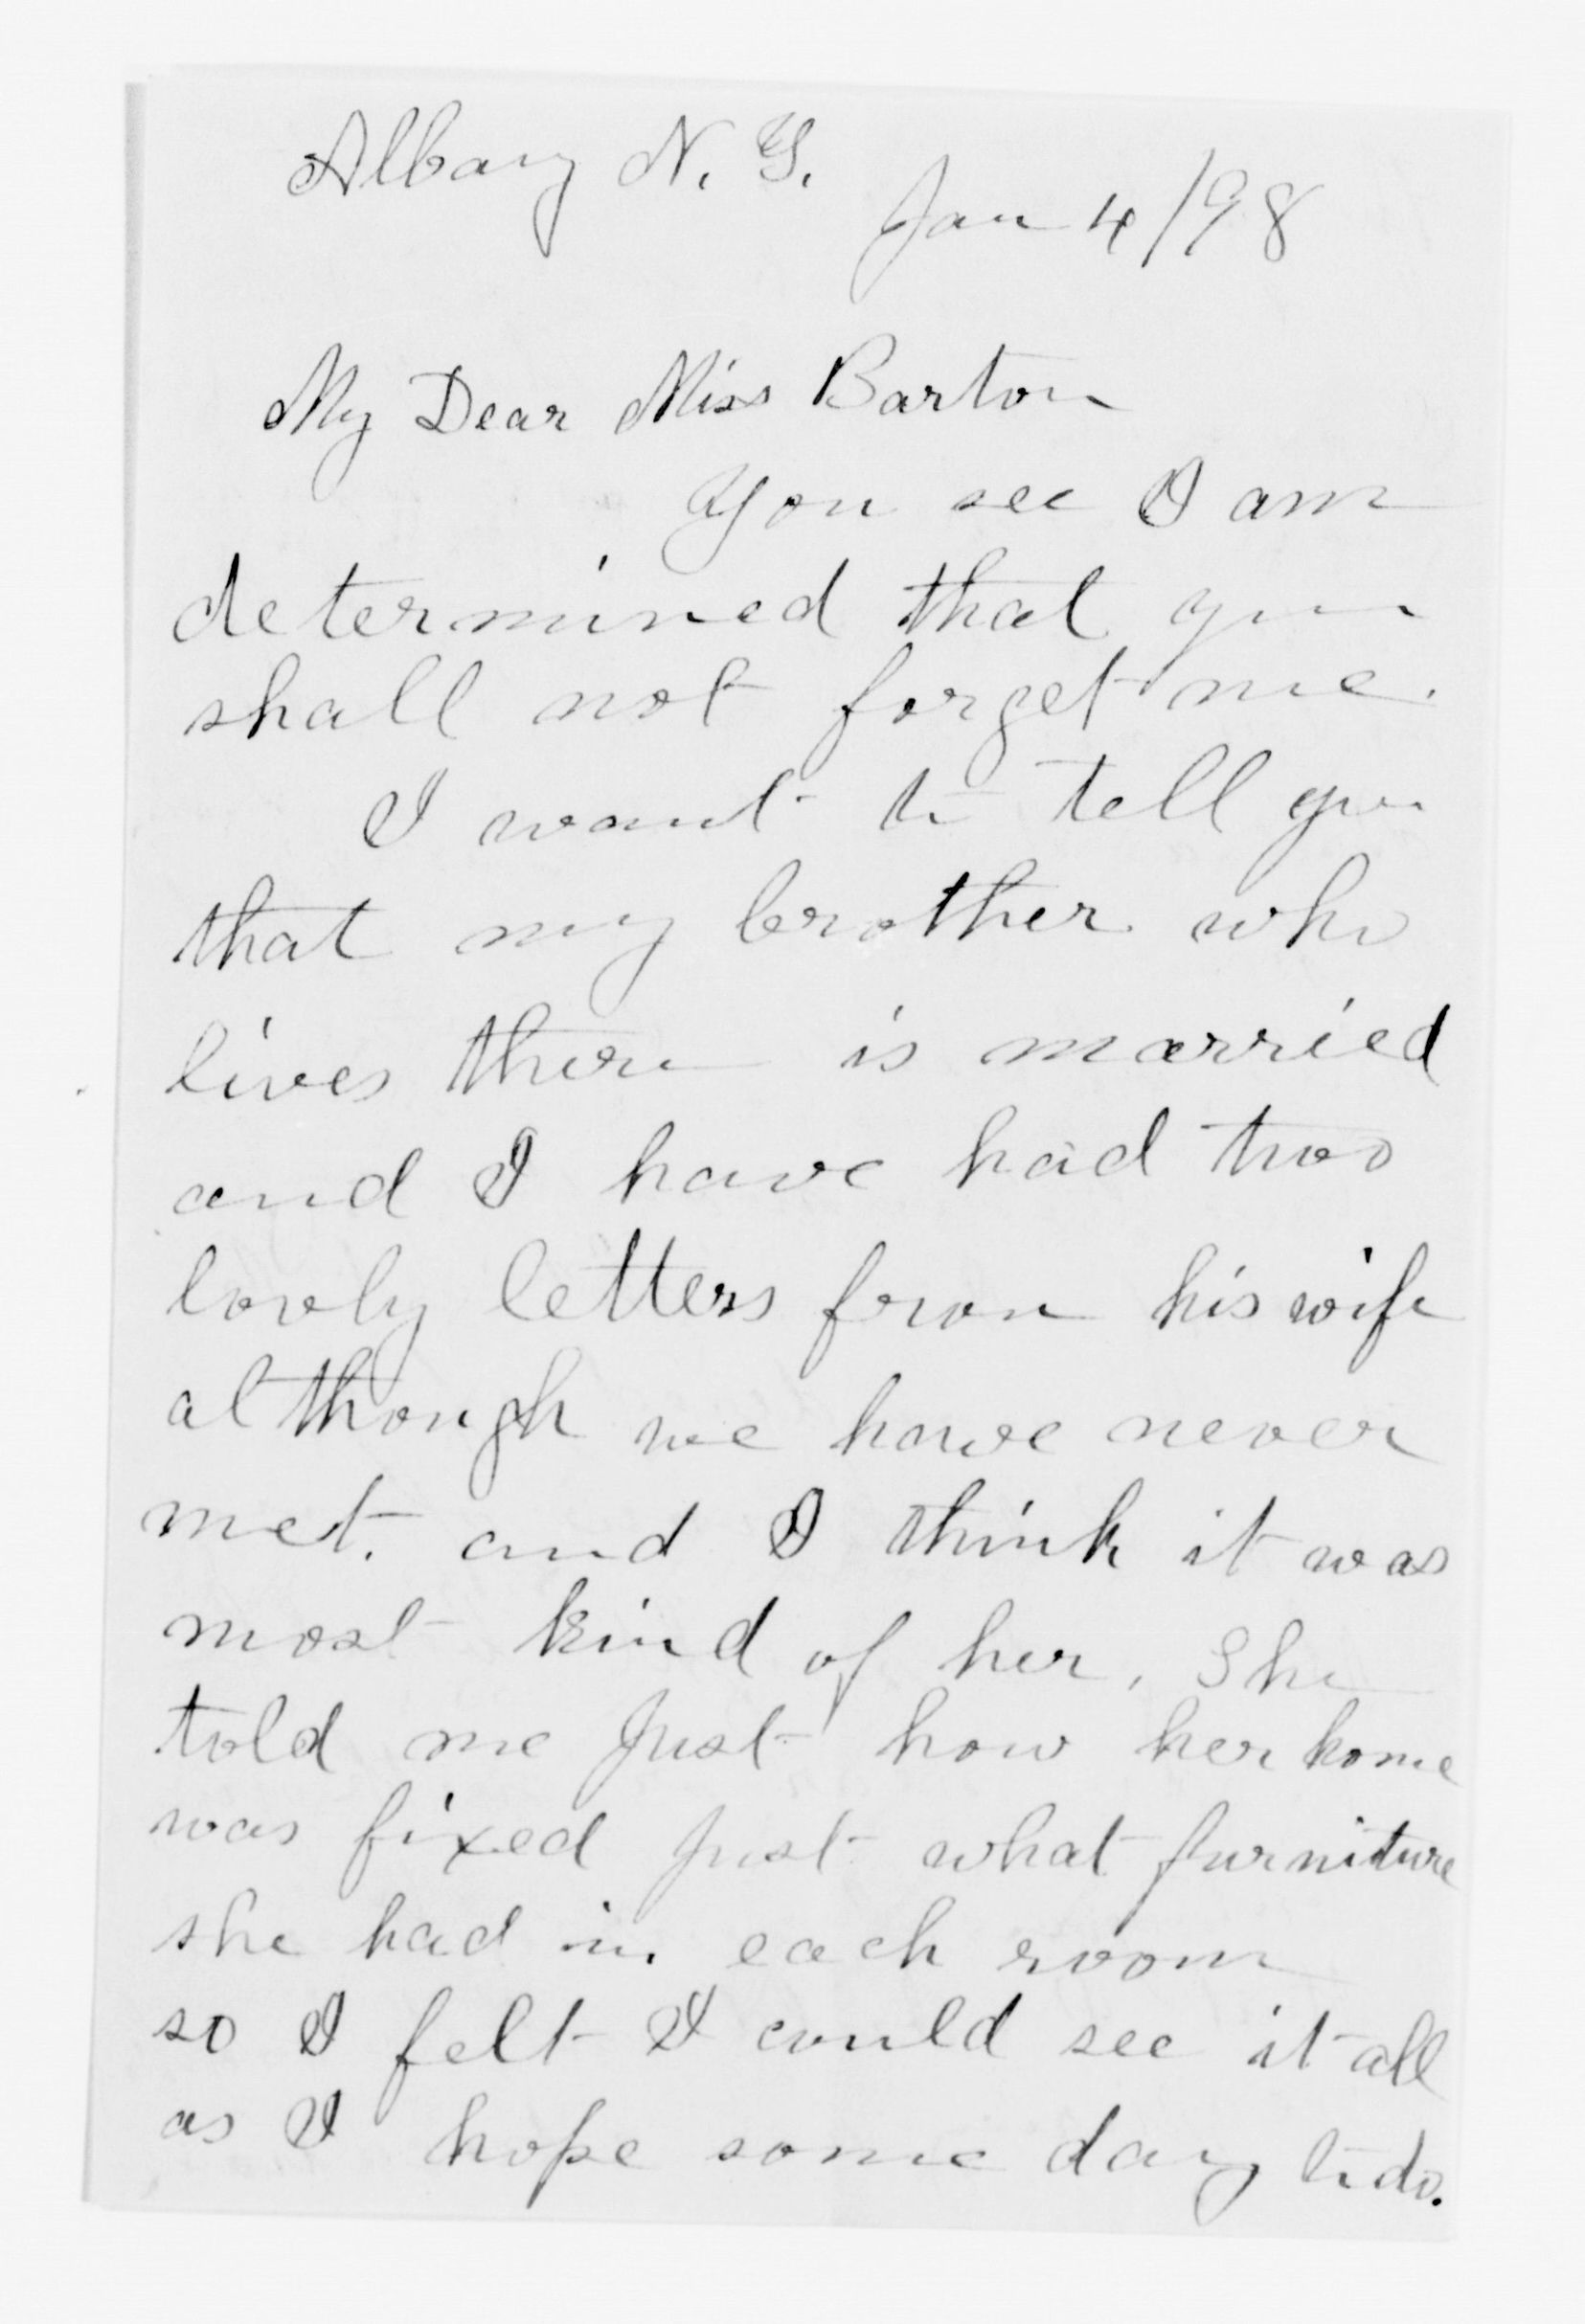 Albany N. Y.
Jan 4/98
My Dear Miss Barton
You see I am
determined that you
shall not forget me.
I want to tell you
that my brother who
lives there is married
and I have had two
lovely letters from his wife
although we have never
met. and I think it was
most kind of her. She
told me just how her home
was fixed just what furniture
she had in each room
so I felt I could see it all
as I hope some day to do.